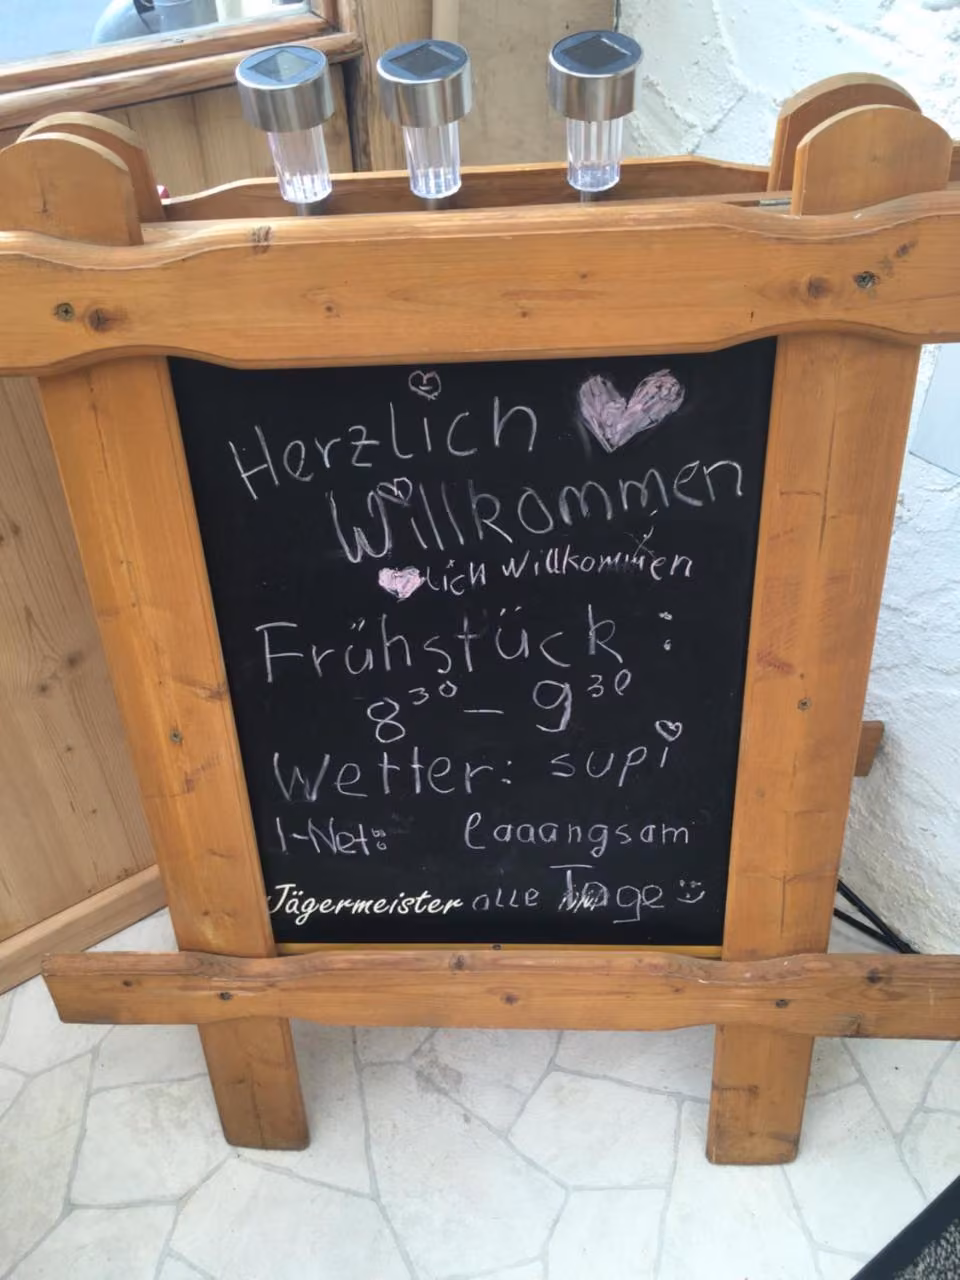 Herzlich
Willkommen
lich Willkommen
Frühstück:
8³⁰ – 9³⁰
Wetter: supi
I-Net: laaangsam
Jägermeister alle Tage